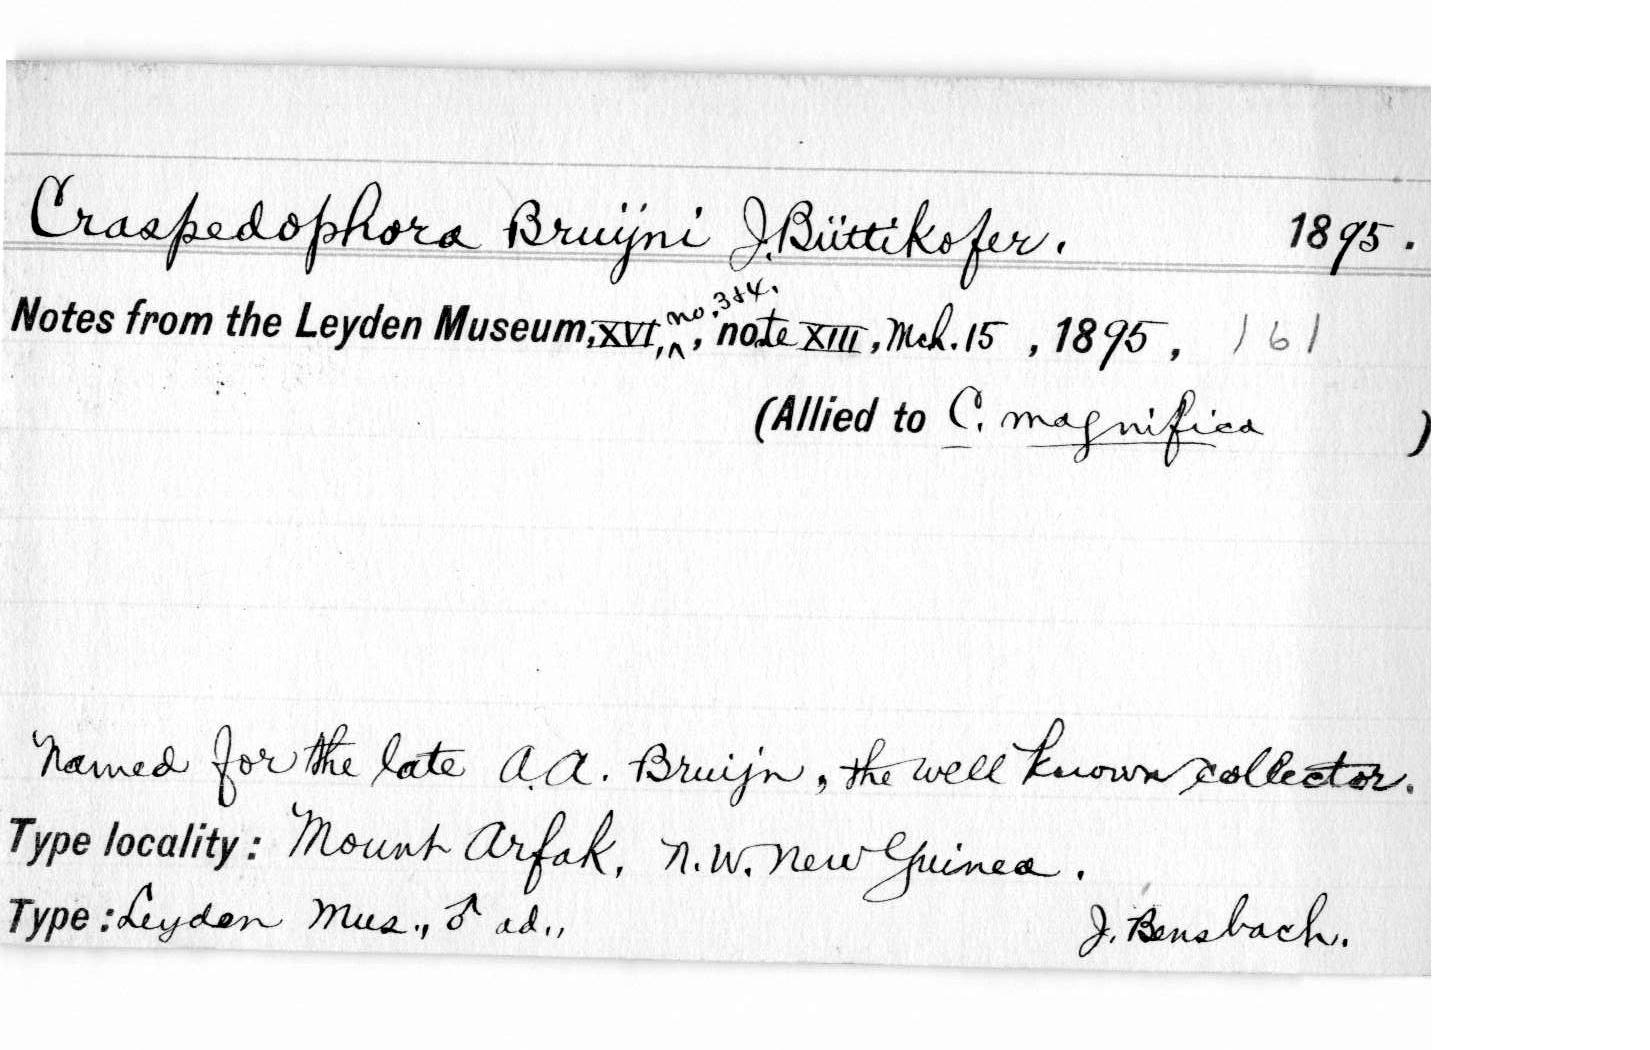 Craspedophora Bruijni J. Büttikofer. 1895.
Notes from the Leyden Museum, XVI, no. 3 & 4, note XIII, Mch. 15, 1895, 161
(Allied to C. magnifica )
Named for the late A.A. Bruijn, the well known collector.
Type locality: Mount Arfak, N.W. New Guinea.
Type: Leyden Mus., ♂ ad., J. Bensbach.